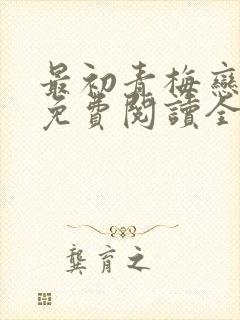 最初青梅戀
免費閱讀全
龔育之